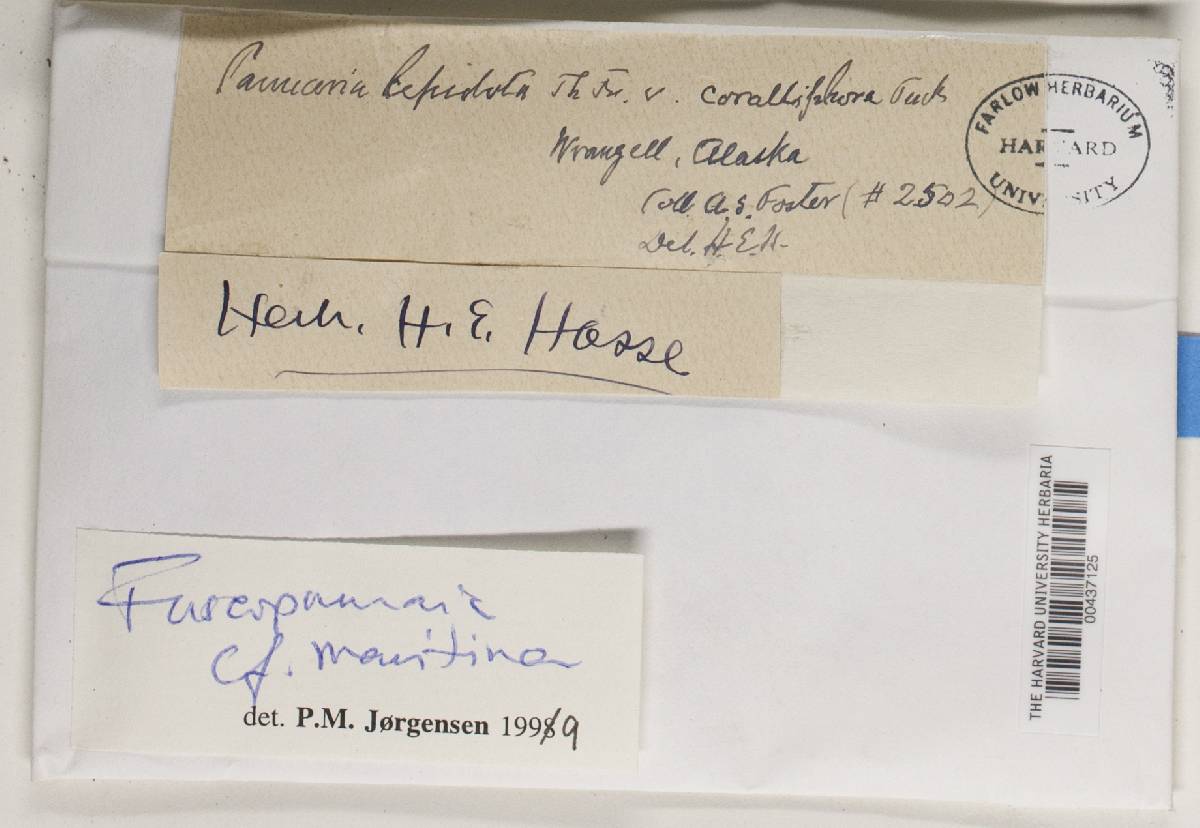 Pannaria lepidota Th. Fr. v. coralliphora Tuck
Wrangell, Alaska
Coll A. S. Foster (# 2502)
Det. H.E.H.
FARLOW HERBARIUM
HARVARD
UNIVERSITY
Herb. H. E. Hasse
THE HARVARD UNIVERSITY HERBARIA
00437125
Fuscopannaria
cf. maritima
det. P.M. Jørgensen 1999